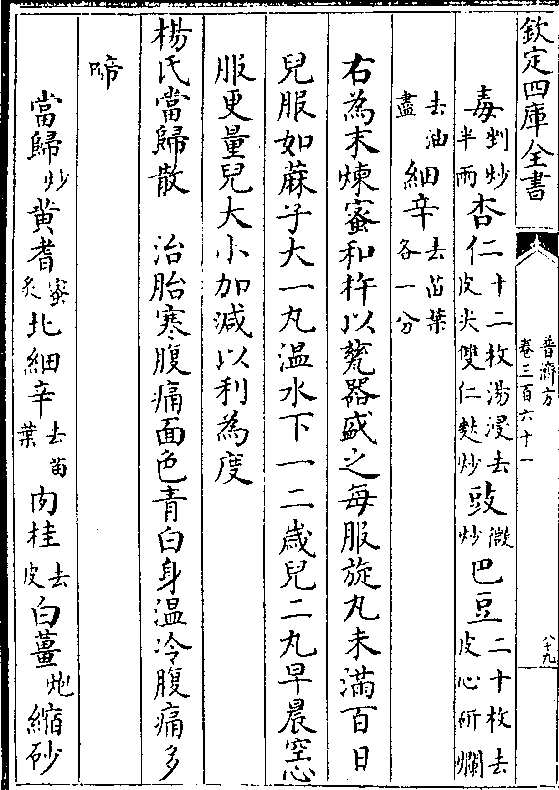 欽定四庫全書
普濟方
卷三百六十一
八十九
毒剉炒半兩杏仁二十二枚湯浸去皮尖雙仁麩炒豉微炒巴豆二十枚去皮心研爛
去油盡細辛去苗葉各一分
右為末煉蜜和杵以甆器盛之每服旋丸未滿百日
兒服如蔴子大一丸温水下一二歲兒二丸早晨空心
服更量兒大小加減以利為度
楊氏當歸散　治胎寒腹痛面色青白身温冷腹痛多
啼
當歸炒黄耆蜜炙北細辛去苗葉肉桂去皮白薑炮縮砂